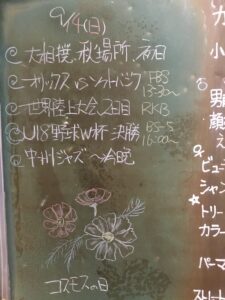 9/14(日)
◎大相撲、秋場所、初日
◎オリックス vs ソフトバンク EBS 13:30〜
◎世界陸上大会、2日目 RKB
◎U18野球W杯 決勝 BS-5 16:00〜
◎中州ジャズ〜今晩
コスモスの日
カ
小
男
顔
え
ビュー
シャン
☆トリー
カラー
パーマ
ストレート